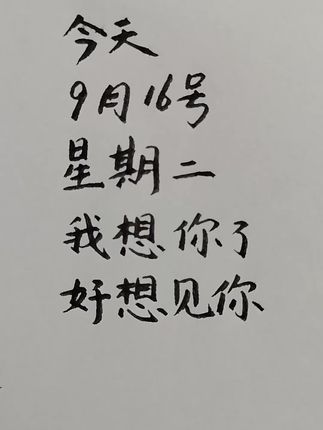 今天
9月16号
星期二
我想你了
好想见你